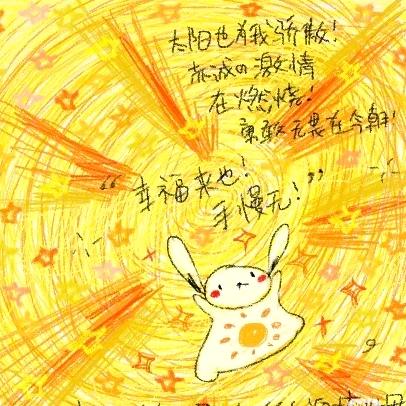 太阳也有我骄傲!
赤诚の激情
在燃烧!
勇敢无畏在今朝!
“幸福来也!
手慢无!”